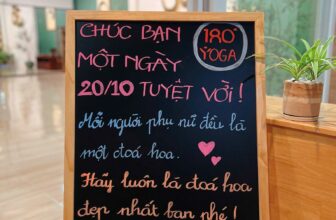 CHÚC BẠN
180°
YOGA
MỘT NGÀY
20/10 TUYỆT VỜI !
Mỗi người phụ nữ đều là
một đoá hoa.
Hãy luôn là đoá hoa
đẹp nhất bạn nhé !